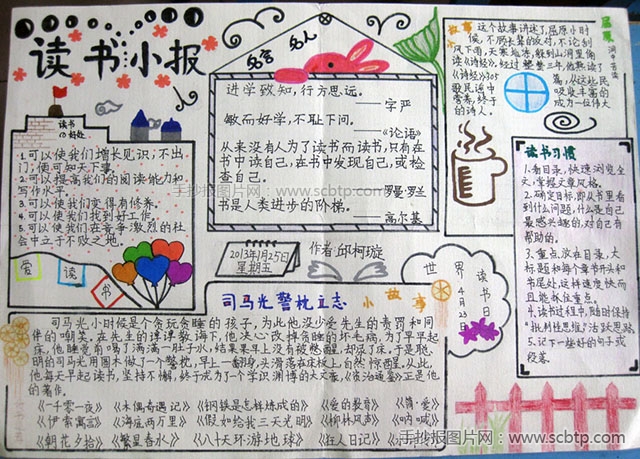 读书小报
名言 名人
进学致知,行方思远。
——字严
敏而好学,不耻下问。
——《论语》
从来没有人为了读书而读书,只有在
书中读自己,在书中发现自己,或检
查自己。
——罗曼·罗兰
书是人类进步的阶梯。
——高尔基
读书
的好处
1.可以使我们增长见识;不出
门;便可知天下事。
2.可以提高我们的阅读能力和
写作水平。
3.可以使我们变得有修养。
4.可以使我们找到好工作。
5.可以使我们在竞争激烈的社
会中立于不败之地。
爱 读 书
2013年1月25日
星期五
作者:邱柯璇
故事
屈原
洞中苦读
这个故事讲述了屈原小时
候,不顾长辈的反对,不论刮
风下雨,天寒地冻,躲到山洞里偷
读《诗经》,经过整整三年,他熟读了
《诗经》305
篇,从这些民
歌民谣中
吸收丰富的
营养,终于
成为一位伟大
的诗人。
读书习惯
1.看目录,快速浏览全
文,掌握文章风格。
2.确定目标,即从书里看
到什么问题,什么是自己
最感兴趣的,对自己有
帮助的。
3.重点放在目录,大
标题和每个章节开头和
书尾处,这样速度快而
且能抓住重点。
4.读书过程中,随时保持
“批判性思维”活跃思路
5.记下一些好的句子或
段落。
世界
读书日
4月23日
司马光警枕立志 小故事
司马光小时候是个贪玩贪睡的孩子,为此他没少受先生的责罚和同
伴的嘲笑,在先生的谆谆教诲下,他决心改掉贪睡的坏毛病,为了早早起
床,他睡觉前喝了满满一肚子水,结果早上没有被憋醒,却尿了床,于是聪
明的司马光用圆木做了一个警枕,早上一翻身,头滑落在床板上,自然惊醒,从此,
他每天早起读书,坚持不懈,终于成为了一个学识渊博的大文豪,《资治通鉴》正是他
的著作。
《一千零一夜》 《木偶奇遇记》 《钢铁是怎样炼成的》 《爱的教育》 《简·爱》
《伊索寓言》 《海底两万里》 《假如给我三天光明》 《柳林风声》 《呐喊》
《朝花夕拾》 《繁星春水》 《八十天环游地球》 《狂人日记》
手抄报图片网:www.scbtp.com
手抄报图片网:www.scbtp.com